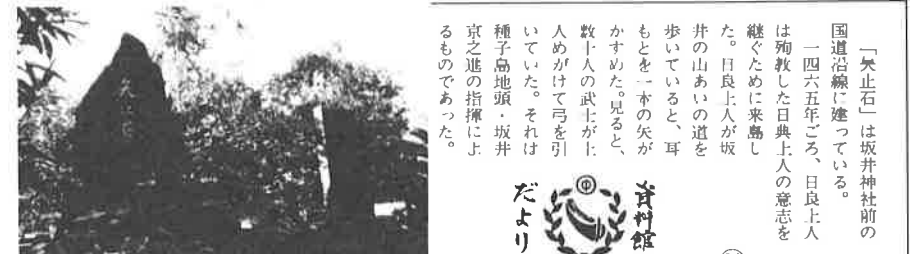 「矢止石」は坂井神社前の
国道沿線に建っている。
一四六五年ごろ、日良上人
は殉教した日典上人の意志を
継ぐために来島し
た。日良上人が坂
井の山あいの道を
歩いていると、耳
もとを一本の矢が
かすめた。見ると、
数十人の武士が上
人めがけて弓を引
いていた。それは
種子島地頭・坂井
京之進の指揮によ
るものであった。
資料館
だより